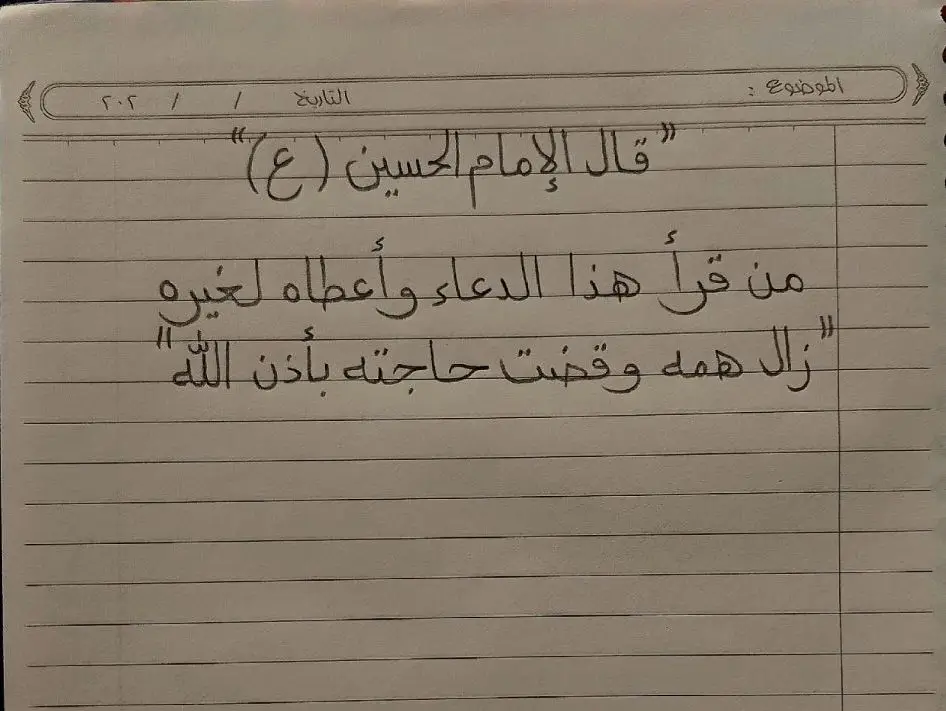 الموضوع : التاريخ / / ٢٠٢
"قال الإمام الحسين (ع)"
من قرأ هذا الدعاء وأعطاه لغيره
"زال همه وقضت حاجته بأذن الله"